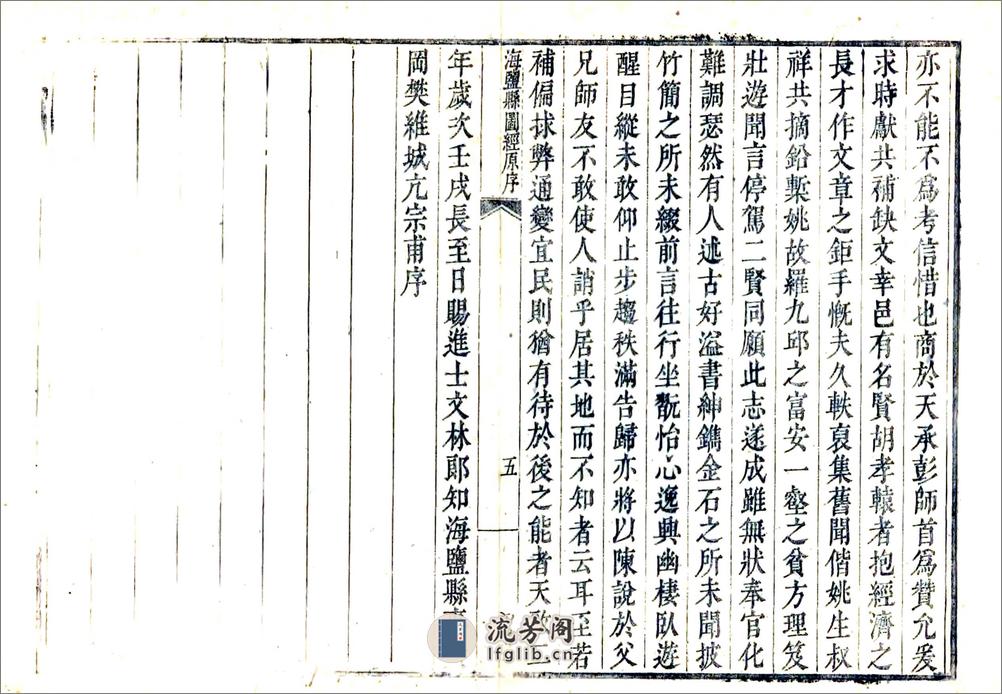 亦不能不爲考信惜也商於天承彭師首爲贊允爰
求時獻共補缺文幸邑有名賢胡孝轅者抱經濟之
長才作文章之鉅手慨夫久軼裒集舊聞偕姚生叔
祥共摘鉛槧姚故羅九邱之富安一壑之貧方理笈
壯遊聞言停駕二賢同願此志遂成雖無狀奉官化
難調瑟然有人述古好溢書紳鐫金石之所未聞披
竹簡之所未綴前言往行坐翫怡心逸興幽棲臥遊
醒目縱未敢仰止步趨秩滿告歸亦將以陳說於父
兄師友不敢使人誚乎居其地而不知者云耳至若
補偏捄弊通變宜民則猶有待於後之能者天啟二
海鹽縣圖經原序
五
年歲次壬戌長至日賜進士文林郎知海鹽縣事
岡樊維城亢宗甫序
流芳阁
lfglib.cn